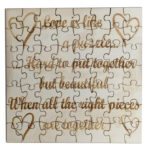 Love is like
a puzzle
Hard to put together
but beautiful
When all the right pieces
are together